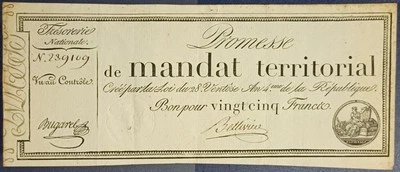 Trésorerie
Nationale.
N. 239109
Vu au Contrôle.
Bugarel
Promesse
de mandat territorial
Créé par la Loi du 28. Ventôse An 4.eme de la République.
Bon pour vingt cinq Francs